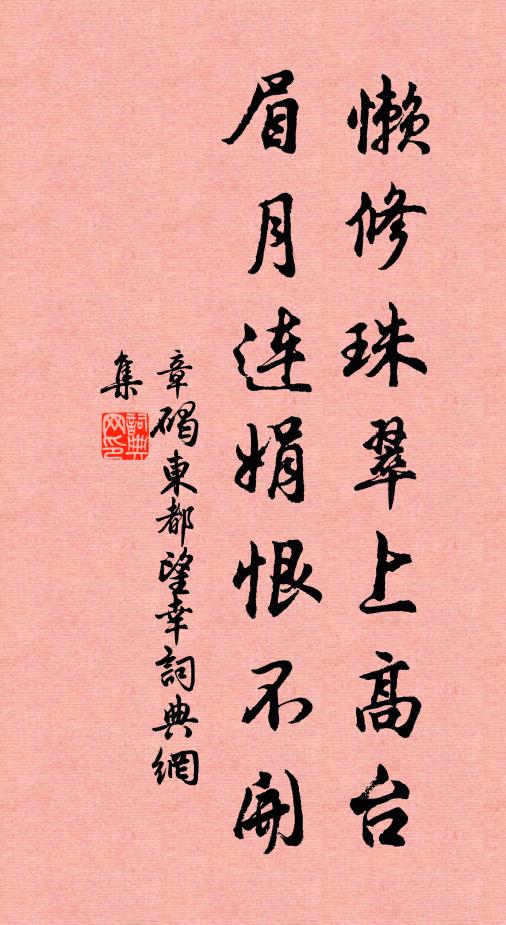 懒修珠翠上高台
眉月连娟恨不開
章碣東都望幸詞典網
集
詞典
网印